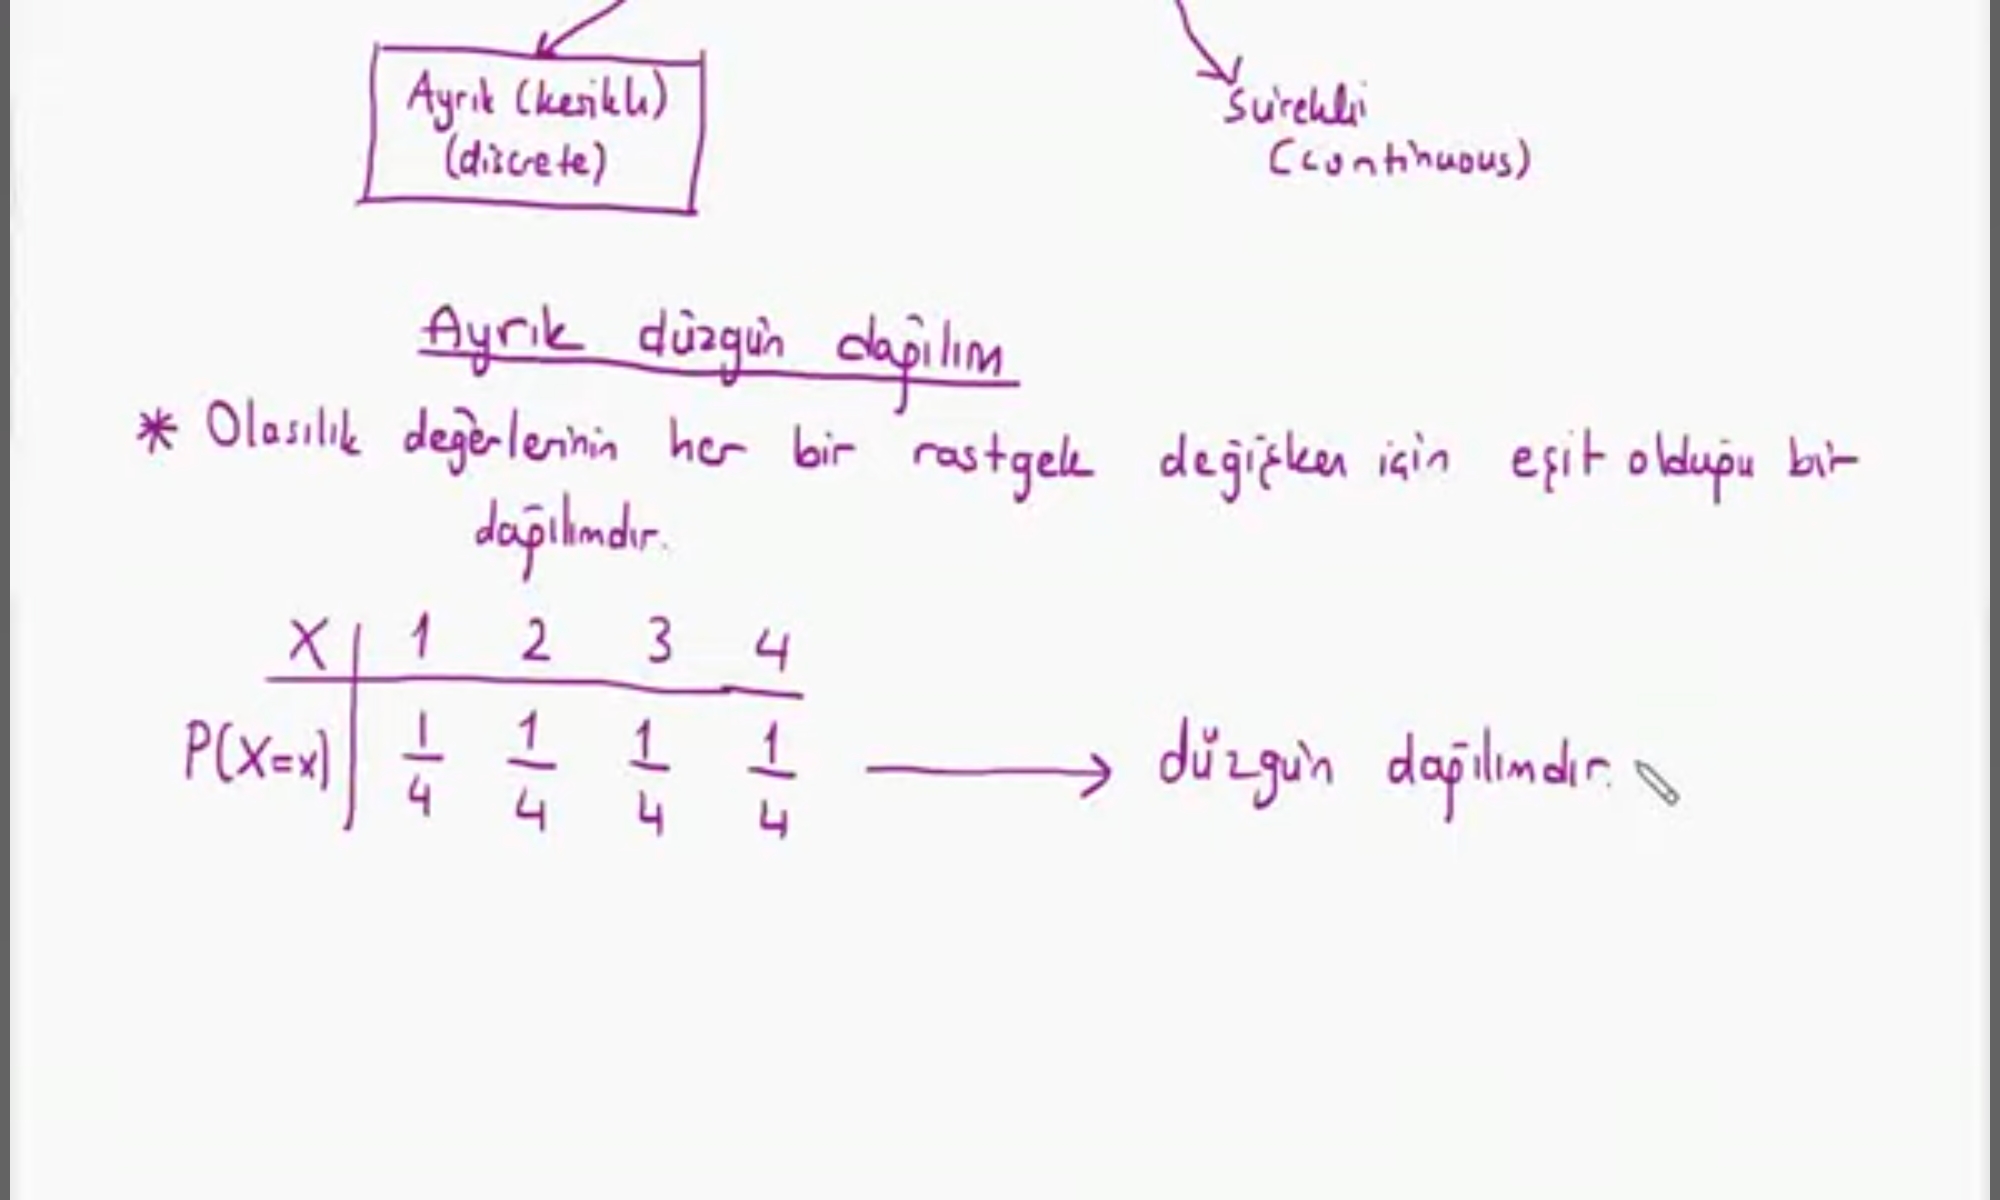 Ayrık (kesikli)
(discrete)
Sürekli
(continuous)
Ayrık düzgün dağılım
* Olasılık değerlerinin her bir rastgele değişken için eşit olduğu bir
dağılımdır.
X 1 2 3 4
P(X=x) 1/4 1/4 1/4 1/4 → düzgün dağılımdır.